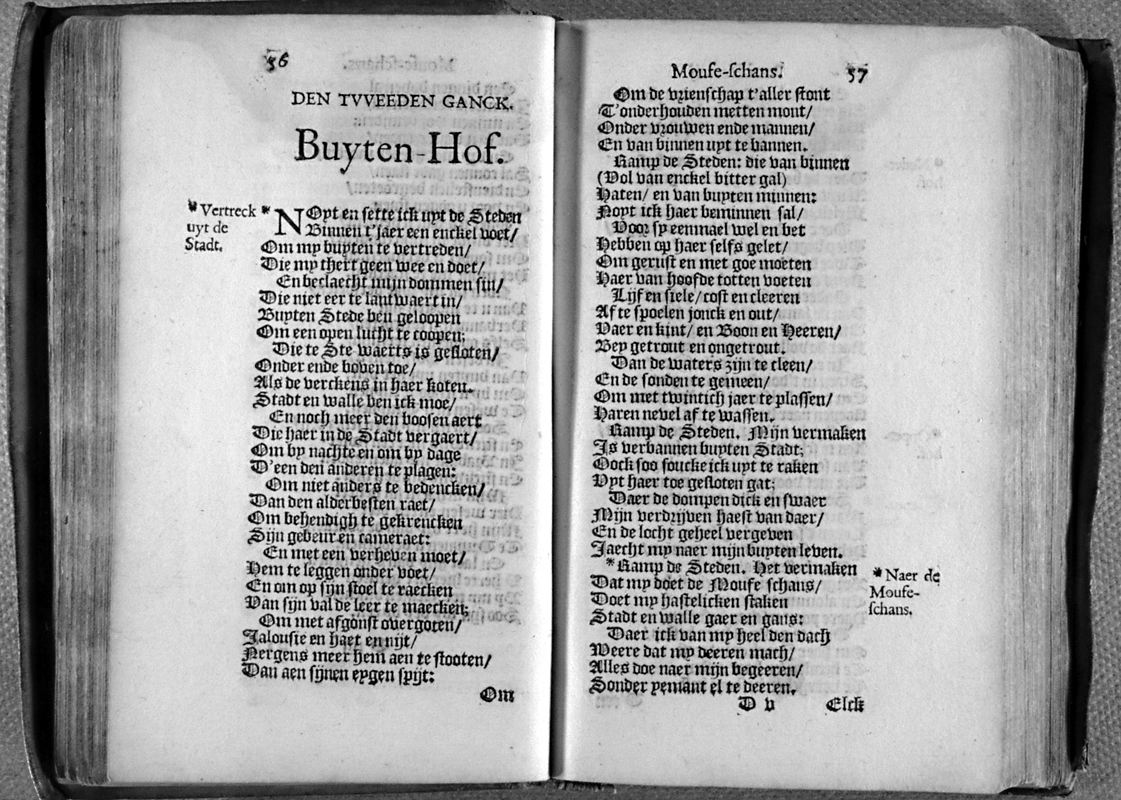 56
DEN TVVEEDEN GANCK.
Buyten-Hof.
* Vertreck
uyt de
Stadt.
* NOyt en sette ick uyt de Steden
Binnen t'jaer een enckel voet/
Om my buyten te vertreden/
Die my thert geen wee en doet/
En beclaecht mijn dommen sin/
Die niet eer te lantwaert in/
Buyten Stede ben geloopen
Om een open lucht te coopen;
Die te Ste waerts is gesloten/
Onder ende boven toe/
Als de verckens in haer koten.
Stadt en walle ben ick moe/
En noch meer den boosen aert
Die haer in de Stadt vergaert/
Om by nachte en om by dage
D'een den anderen te plagen:
Om niet anders te bedencken/
Dan den alderbesten raet/
Om behendigh te gekrencken
Sijn gebeur en cameraet:
En met een verheven moet/
Hem te leggen onder voet/
En om op sijn stoel te raecken
Van sijn val de leer te maecken;
Om met afgonst overgoten/
Jalousie en haet en nijt/
Nergens meer hem aen te stooten/
Dan aen sijnen eygen spijt:
Om
Moufe-schans. 57
Om de vrienschap t'aller stont
T'onderhouden metten mont/
Onder vrouwen ende mannen/
En van binnen uyt te bannen.
Ramp de Steden: die van binnen
(Vol van enckel bitter gal)
Haten/ en van buyten minnen:
Noyt ick haer beminnen sal/
Voor sy eenmael wel en bet
Hebben op haer selfs gelet/
Om gerust en met goe moeten
Haer van hoofde totten voeten
Lijf en siele/ cost en cleeren
Af te spoelen jonck en out/
Vaer en kint/ en Boon en Heeren/
Bey getrout en ongetrout.
Dan de waters zijn te cleen/
En de sonden te gemeen/
Om met twintich jaer te plassen/
Haren nevel af te wassen.
Ramp de Steden. Mijn vermaken
Is verbannen buyten Stadt;
Oock soo soucke ick uyt te raken
Uyt haer toe gesloten gat;
Daer de dompen dick en swaer
Mijn verdrijven haest van daer/
En de locht geheel vergeven
Jaecht my naer mijn buyten leven.
* Ramp de Steden. Het vermaken
Dat my doet de Moufe schans/
Doet my hastelicken staken
Stadt en walle gaer en gans:
Daer ick van my heel den dach
Weere dat my deeren mach/
Alles doe naer mijn begeeren/
Sonder yemant el te deeren.
* Naer de
Moufe-
schans.
D v Elck